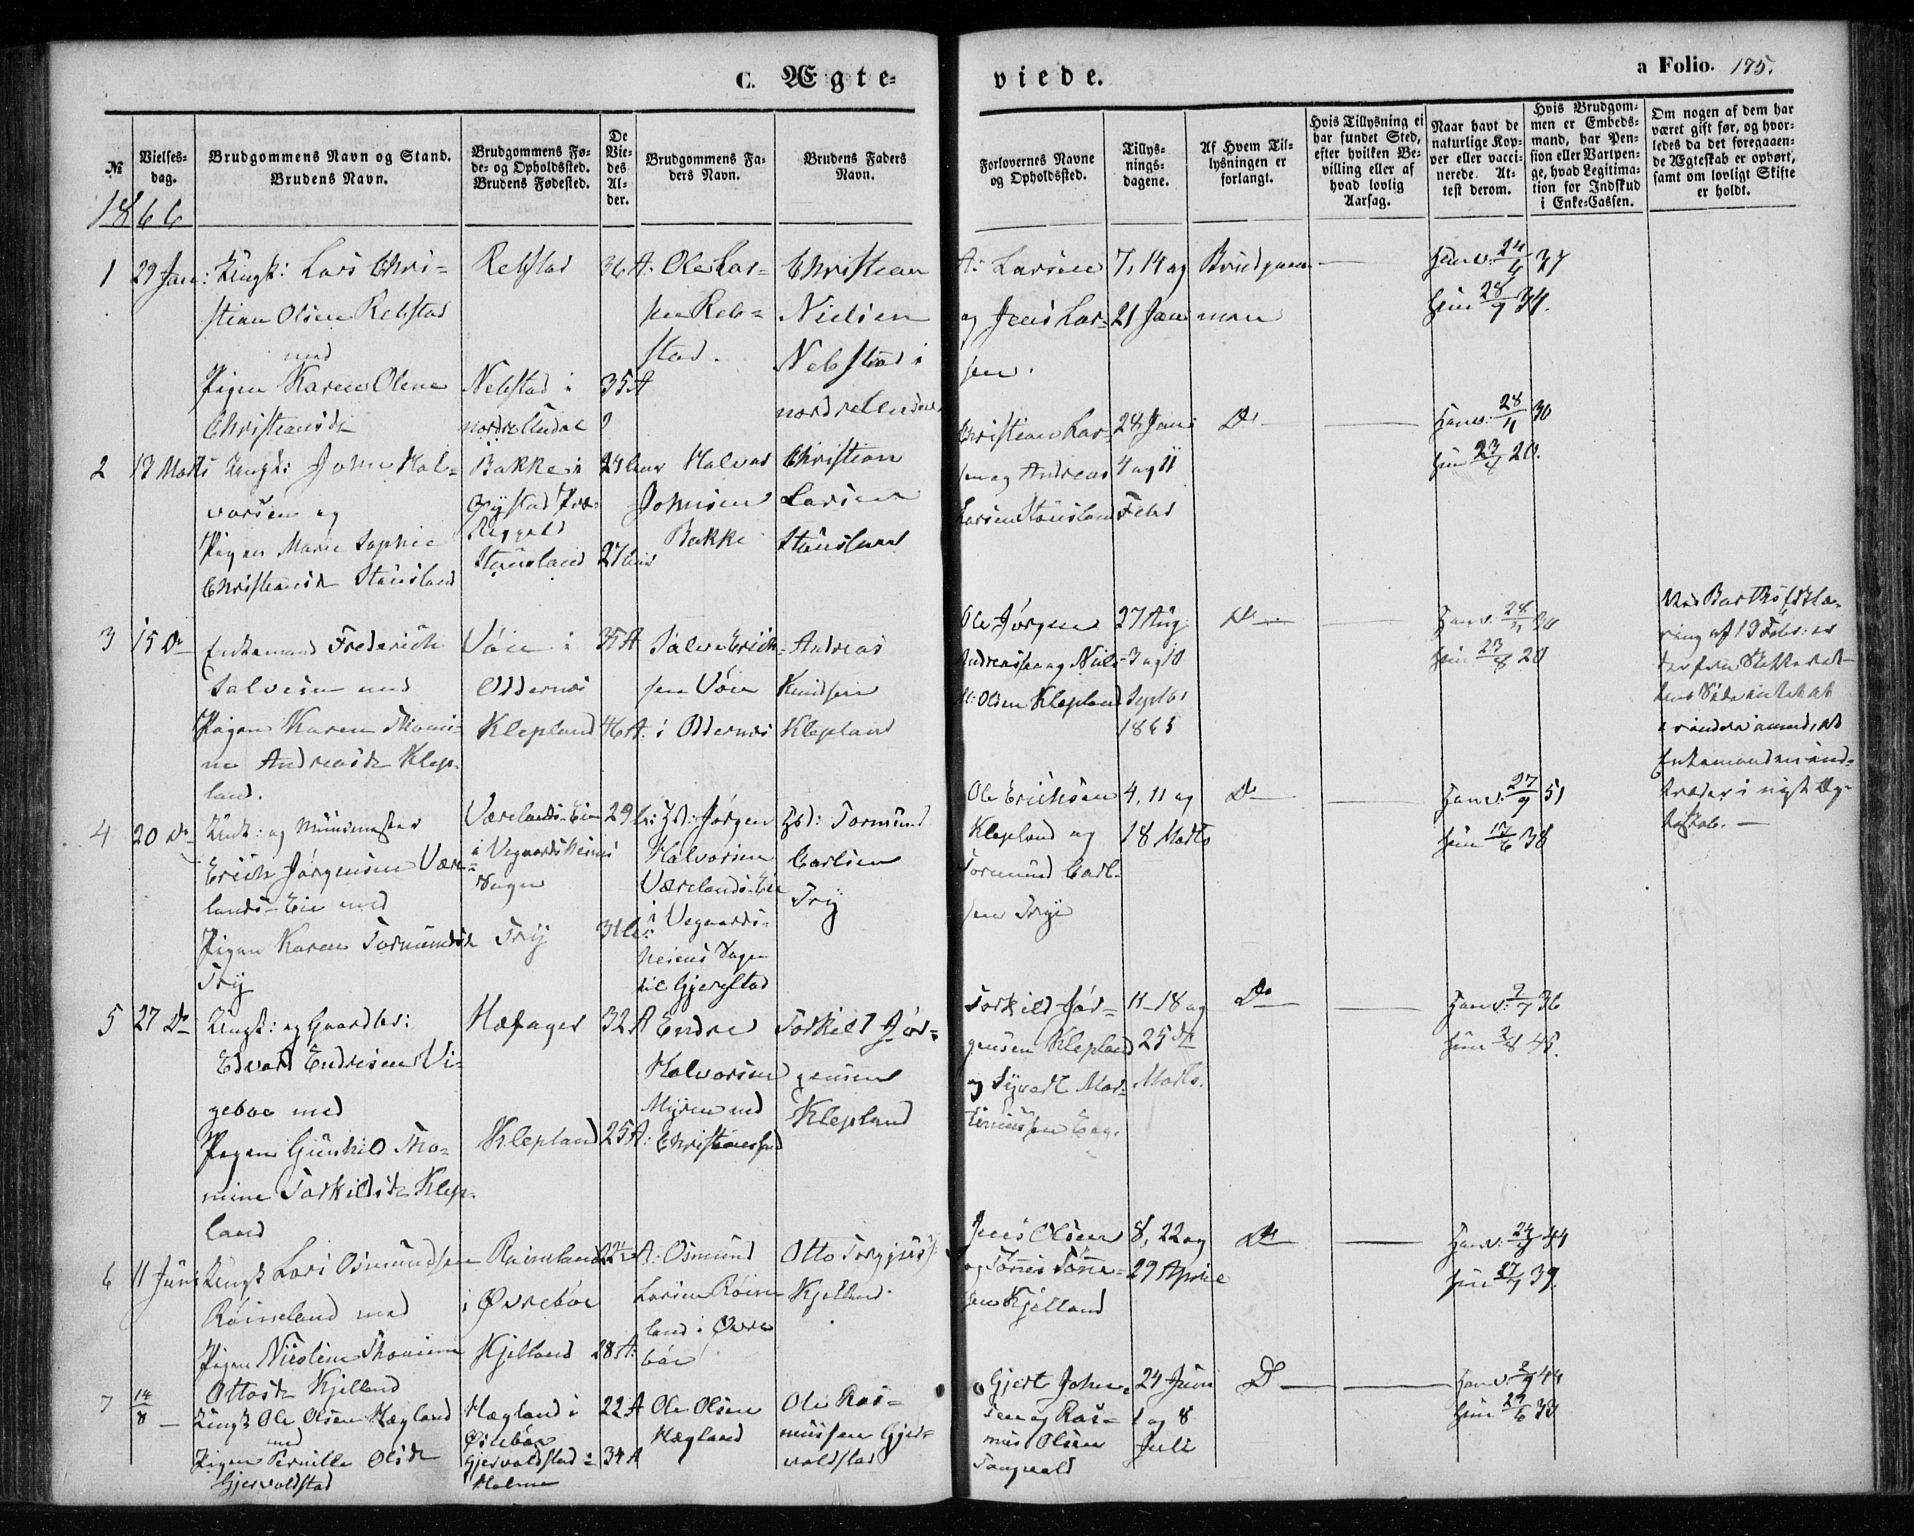 C. Ægte-
viede.
a Folio. 175.
№
Vielses-
dag.
Brudgommens Navn og Stand.
Brudens Navn.
Brudgommens Fø-
de- og Opholdssted.
Brudens Fødested.
De
Vie-
des
Al-
der.
Brudgommens Fa-
ders Navn.
Brudens Faders
Navn.
Forlovernes Navne
og Opholdssted.
Tillys-
nings-
dagene.
Af Hvem Til-
lysningen er
forlangt.
Hvis Tillysning ei
har fundet Sted,
efter hvilken Be-
villing eller af
hvad lovlig
Aarsag.
Naar havt de
naturlige Kop-
per eller vacci-
nerede. At-
test derom.
Hvis Brudgom-
men er Embeds-
mand, har Pen-
sion eller Vartpen-
ge, hvad Legitima-
tion for Indskud
i Enke-Cassen.
Om nogen af dem har
været gift før, og hvor-
ledes da det foregaaen-
de Ægteskab er ophørt,
samt om lovligt Skifte
er holdt.
1866
1
29 Jan:
Ungk: Lars Chri-
stian Olsen Rebstad
med
Pigen Karen Olene
Christiansdr
Rebstad
Nebstad i
nordre Undal
36 A:
35 A
Ole Lar-
sen Reb-
stad.
Christian
Nielsen
Nebstad i
nordre Undal
A: Larsen
og Jens Lar-
sen.
7, 14 og
21 Jan
Brudgom-
men
Han v: 24/4 37
Hun 28/9 34.
2
13 Marts
Ungk: John Hal-
vorsen og
Pigen Marie Sophie
Christiansdr Stausland
Bakke i
Præ-
Stausland
27
Halvor
Johnsen
Bakke
Christian
Larsen
Stausland
Christian Lar-
sen og Andreas
Larsen Stausland
28 Jan:
4 og 11
Febr
Do
Han v: 28/4 30
Hun 23/8 20.
3
15 Do
Enkemand Frederich
Salvesen med
Pigen Karen Thomi-
ne Andreasdr Klep-
land.
Vøie i
Oddernes
Klepland
35 A
46 A:
Salve Erich-
sen Vøie
i Oddernes
Andreas
Knudsen
Klepland
Ole Jørgen
Andreassen og Niels
M: Olsen Klepland
27 Aug
3 og 10
Septbr
1865
Do
Han v: 28/
Hun 23/8 20
ring af 13 Febr: er
der fra Skifteret-
tens Side intet at
erindre imod, at
Enkemanden ind-
træder i nyt Æg-
teskab.
4
20 Do
Ungk: og Muurmester
Erich Jørgensen Være-
lands-Eie med
Pigen Karen Tormundsdr
Try
Værelands-Eie
i Vegaardsheiens
Sogn
Try
29
31
Jørgen
Halvorsen
Værelands-Eie
i Vegaards-
heiens Sogn
til Gjerestad
Tormund
Carlsen
Try
Ole Erichsen
Klepland og
Tormund Carl-
sen Try
4, 11 og
18 Marts
Do
Han v: 27/9 51
Hun 17/6 38
5
27 Do
Ungk: og Gaardbr:
Edvard Endresen Vi-
geboe med
Pigen Gunhild Tho-
mine Torkildsdr Klep-
land
Høfager
Klepland
32 A
25 A:
Endre
Halvorsen
Myren ved
Christianssand
Torkild Jør-
gensen
Klepland
Torkild Jør-
gensen Klepland
og Syvert Mar-
Eeg.
11-18 og
25de
Marts.
Do
Han v: 7/7 36
Hun 2/8 45.
6
11 Juni
Ungk Lars Osmundsen
Røineland med
Pigen Nicoline Thomine
Ottosdr Kjelland
Røineland
i Øvrebøe
Kjelland
22½ A:
28 A:
Osmund
Larsen Røine-
land i Øvre-
bøe
Otto Torgjus:
Kjelland.
Jens Olsen
og Tønnes Tønne-
sen Kjelland
8, 22 og
29 April
Do
Han v: 24/9 44
Hun 27/7 39.
7
14/8
Ungk Ole Olsen Hægland
med
Pigen Pernille Olsdr
Gjervoldstad
Hægland i
Øvrebøe
Gjervoldstad i
Holme
22 A
34 A
Ole Olsen
Hægland
Ole Ras-
mussen Gjer-
voldstad
Gjert John-
sen og Ras-
mus Olsen
Tangvald
24 Juni
1 og 8
Juli
Do
Han v: 2/9 44
Hun 29/6 33